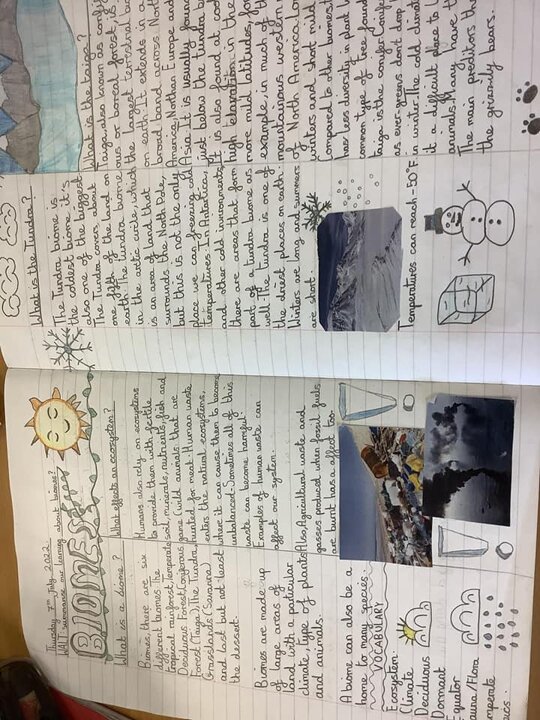 Thursday 7th July 2022
WALT: summarise our learning about biomes?
BIOMES
What is a biome?
Biomes, there are six
different biomes the
tropical rainforest, temperate
Deciduous Forest, Coniferous
Forest (Taiga), the Tundra,
Grasslands (Savanna)
and last but not least
the dessert.
Biomes are made up
of large areas of
land with a particular
climate, type of plants
and animals.
A biome can also be a
home to many species.
VOCABULARY
Ecosystem
Climate
Deciduous
Dormant
What effects an ecosystem?
Humans also rely on ecosystems
to provide them with fertile
soil, minerals, nutrients, fish and
game (wild animals that are
hunted for meat. Human waste
enters the natural ecosystems,
where it can cause them to become
unbalanced. Sometimes all of this
waste can become harmful.
Examples of human waste can
affect our system.
Also, Agricultural waste and
gasses produced when fossil fuels
are burnt has a affect too.
What is the Tundra?
The tundra biome is
the coldest biome it's
also one of the biggest
The tundra covers about
one fifth of the land on
earth. The tundra biome
in the arctic circle, which
is an area of land that
surrounds the North Pole,
but this is not the only
place we can freezing cold
temperatures. In Antarctica,
and other cold environments
there are areas that form
part of a Tundra biome as
well. The Tundra is one of
the driest places on earth.
Winters are long and summers
are short.
Temperatures can reach -50°F.
What is the taiga?
Taiga, also known as conifer-
ous or boreal forest, is
the largest terrestrial bio
on earth. It extends in a
broad band across North
America, Northen Europe and
Asia. It is usually found
just below the tundra bi
It is also found at cool
high elavation in the
more mild latitudes, for
example, in much of th
mountainous western
of North America. Lon
winters and short mild
Compared to other biomes
has less diversity in plant l
common type of tree found
taiga is the conifer. Conifer
as ever-greens don't drop l
in winter. The cold climate
it a difficult place to l
animals. Many have th
The main preditors the
the grizzily bears.